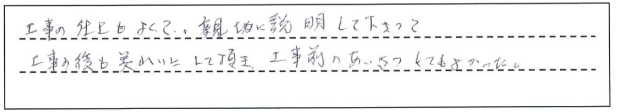 工事の仕上もよくて、親切に説明して下さって
工事の後も美しくして頂き、工事前のあいさつとてもよかった。